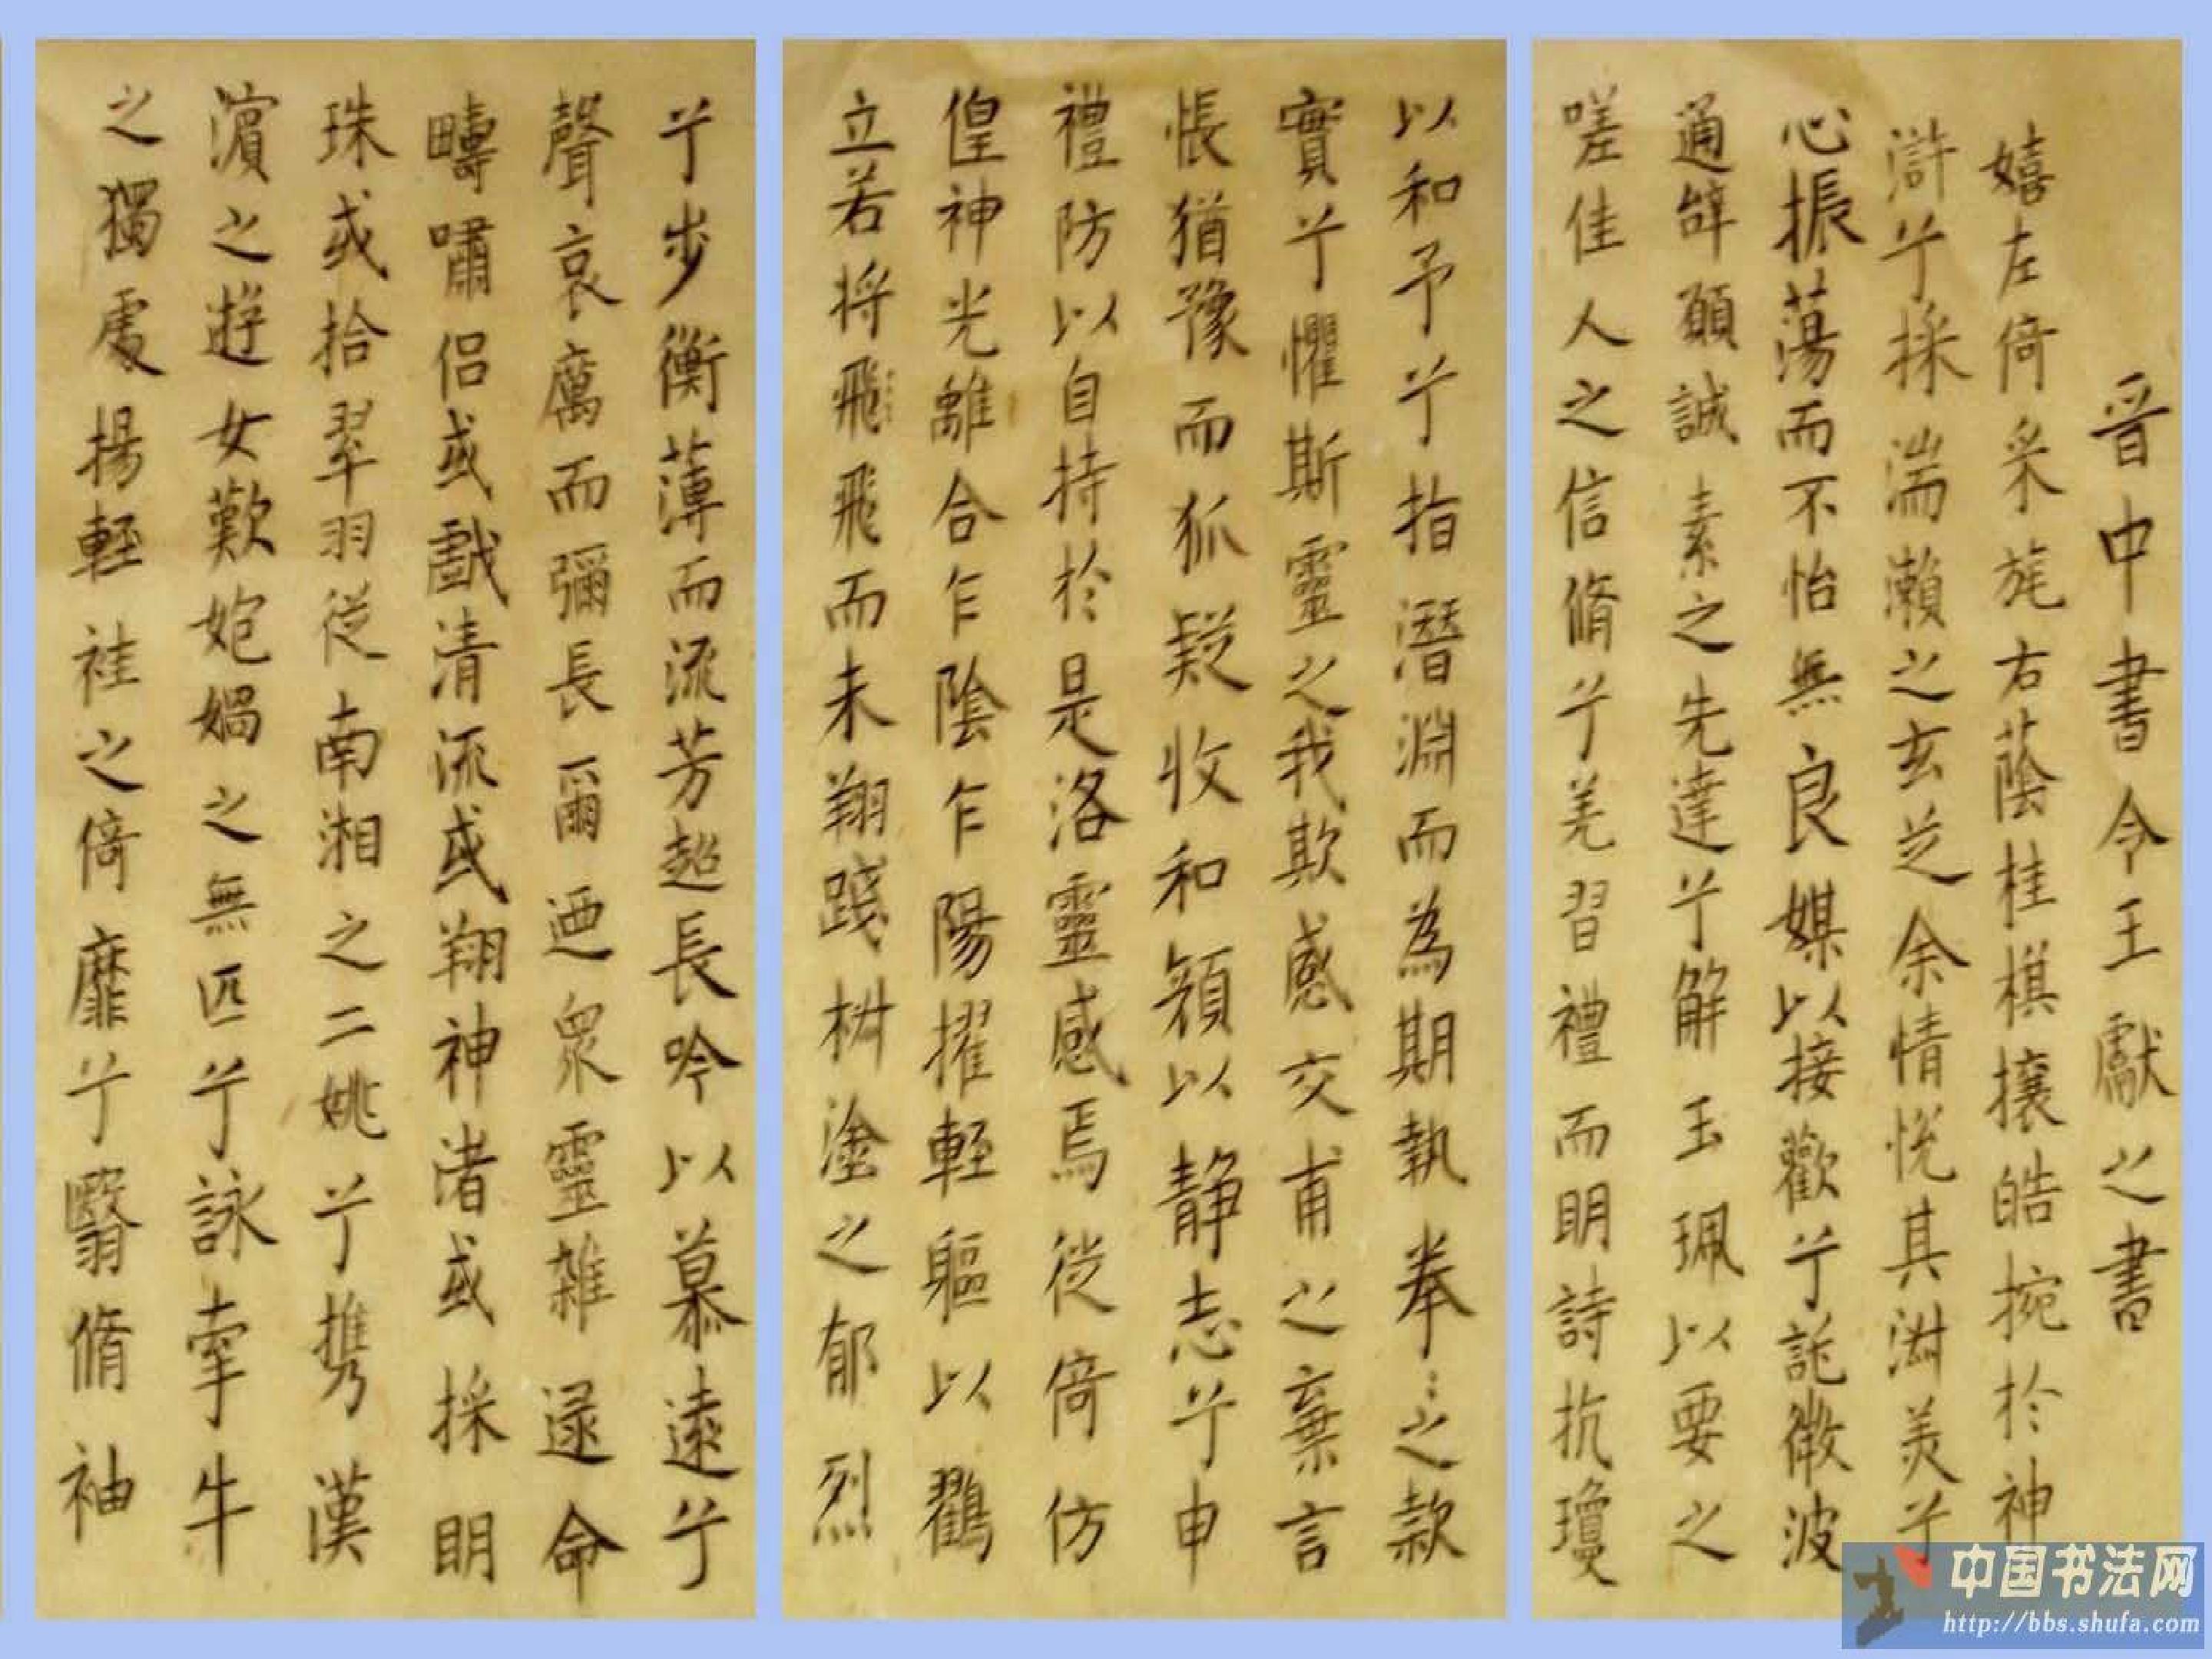 晉中書令王獻之書
嬉左倚采旄右蔭桂棋攘皓捥於神
滸兮採湍瀨之玄芝余情悅其淑美兮
心振蕩而不怡無良媒以接歡兮託微波
通辝願誠素之先達兮解玉珮以要之
嗟佳人之信脩兮羌習禮而明詩抗瓊
以和予兮指潛淵而為期執拳〻之款
實兮懼斯靈之我欺感交甫之棄言
悵猶豫而狐疑收和顏以静志兮申
禮防以自持於是洛靈感焉徙倚仿
偟神光離合乍陰乍陽擢輕軀以鶴
立若将飛飛而未翔踐椒塗之郁烈
兮步蘅薄而流芳超長吟以慕遠兮
聲哀厲而彌長爾迺衆靈雜遝命
疇嘯侶或戲清流或翔神渚或採明
珠或拾翠羽從南湘之二姚兮携漢
濵之遊女歎㚿媧之無匹兮詠牽牛
之獨處揚輕袿之倚靡兮翳脩袖
中国书法网
http://bbs.shufa.com